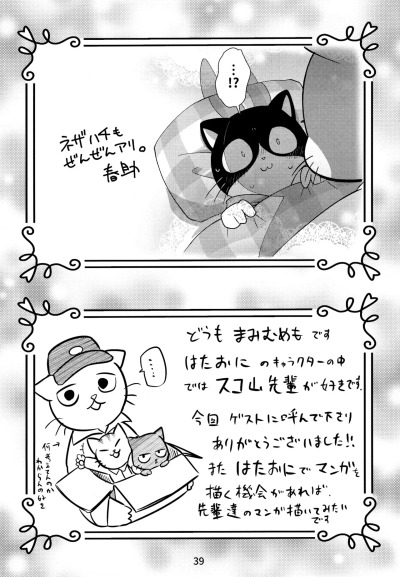 …!?
ネザハチも
ぜんぜんアリ。
春助
どうも まみむめも です
はたおに のキャラクターの中
では スコ山先輩 が好きです。
今回 ゲストに呼んで下さり
ありがとうございました!!
また はたおにで マンガを
描く機会があれば、
先輩達のマンガ描いてみたい
です
……
39